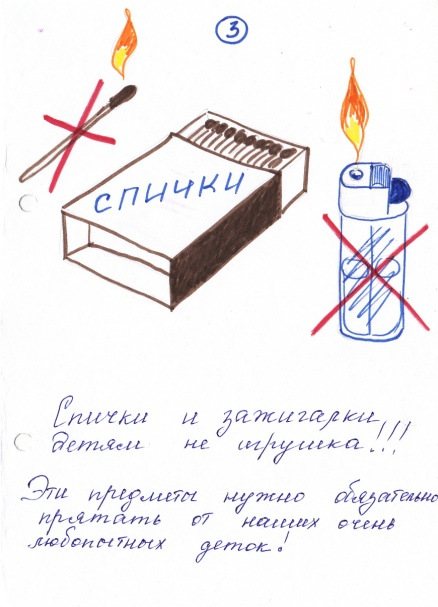 3
СПИЧКИ
Спички и зажигалки
детям не игрушка!!!
Эти предметы нужно обязательно
прятать от наших очень
любопытных деток!